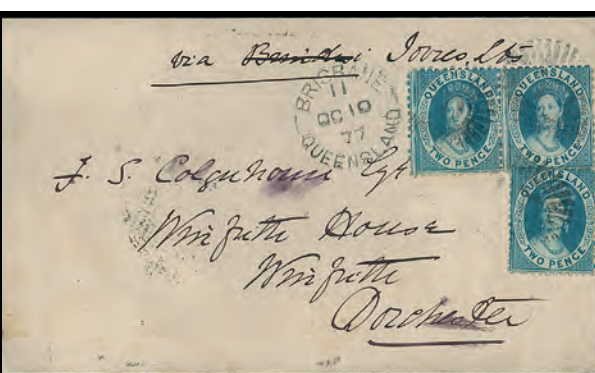 via Brindisi
BRISBANE
11
OC 10
77
QUEENSLAND
QUEENSLAND
TWO PENCE
QUEENSLAND
TWO PENCE
QUEENSLAND
TWO PENCE
J. S. Colquhoun Esqr
Winfrith House
Winfrith
Dorchester